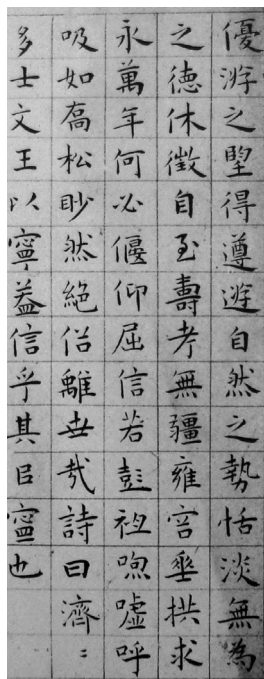 優游之朢得遵遊自然之勢恬淡無為
之德休徵自至壽考無疆雍容垂拱求
永萬年何必偃仰屈信若彭祖呴嘘呼
吸如喬松眇然絕俗離世哉詩曰濟〻
多士文王以寧葢信乎其㠯寧也